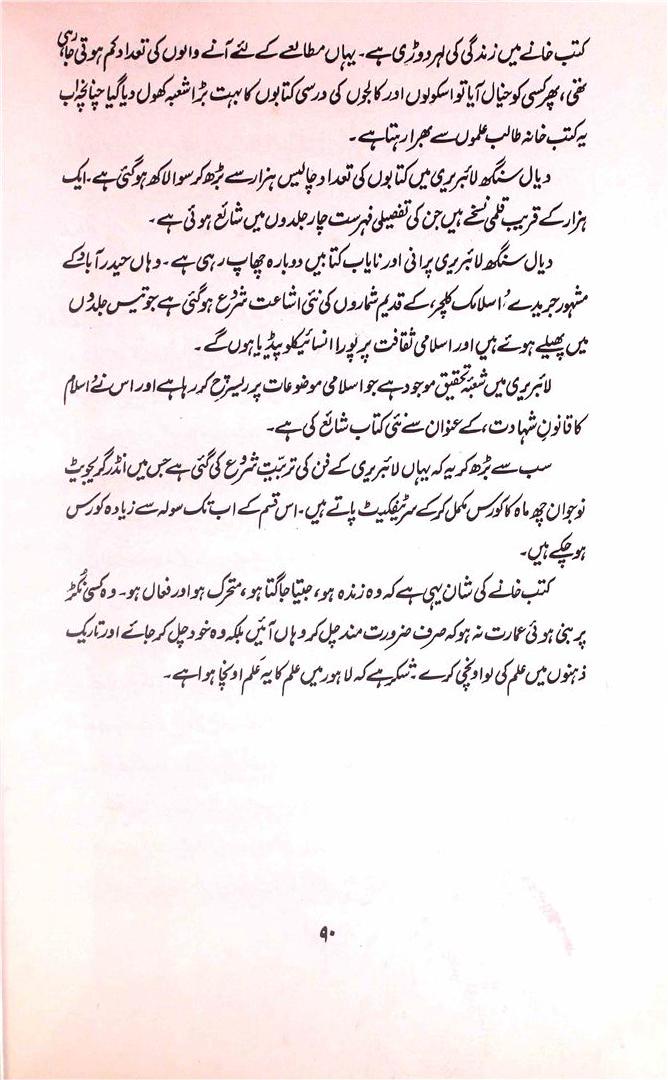 کتب خانے میں زندگی کی لہر دوڑی ہے۔ یہاں مطالعے کے لئے آنے والوں کی تعداد کم ہوتی جا رہی
تھی، پھر کسی کو خیال آیا تو اسکولوں اور کالجوں کی درسی کتابوں کا بہت بڑا شعبہ کھول دیا گیا چنانچہ اب
یہ کتب خانہ طالب علموں سے بھرا رہتا ہے۔
دیال سنگھ لائبریری میں کتابوں کی تعداد چالیس ہزار سے بڑھ کر سوا لاکھ ہو گئی ہے۔ ایک
ہزار کے قریب قلمی نسخے ہیں جن کی تفصیلی فہرست چار جلدوں میں شائع ہوئی ہے۔
دیال سنگھ لائبریری پرانی اور نایاب کتابیں دوبارہ چھاپ رہی ہے۔ وہاں حیدر آباد دکن کے
مشہور جریدے 'اسلامک کلچر' کے قدیم شماروں کی نئی اشاعت شروع ہو گئی ہے جو تیس جلدوں
میں پھیلے ہوئے ہیں اور اسلامی ثقافت پر پورا انسائیکلوپیڈیا ہوں گے۔
لائبریری میں شعبۂ تحقیق موجود ہے جو اسلامی موضوعات پر ریسرچ کر رہا ہے اور اس نے 'اسلام
کا قانونِ شہادت' کے عنوان سے نئی کتاب شائع کی ہے۔
سب سے بڑھ کر یہ کہ یہاں لائبریری کے فن کی تربیت شروع کی گئی ہے جس میں انڈر گریجویٹ
نوجوان چھ ماہ کا کورس مکمل کر کے سرٹیفکیٹ پاتے ہیں۔ اس قسم کے اب تک سولہ سے زیادہ کورس
ہو چکے ہیں۔
کتب خانے کی شان یہی ہے کہ وہ زندہ ہو، جیتا جاگتا ہو، متحرک ہو اور فعال ہو۔ وہ کسی نُکڑ
پر بنی ہوئی عمارت نہ ہو کہ صرف ضرورت مند چل کر وہاں آئیں بلکہ وہ خود چل کر جائے اور تاریک
ذہنوں میں علم کی لو اونچی کرے۔ شکر ہے کہ لاہور میں علم کا یہ عَلم اونچا ہوا ہے۔
۹۰